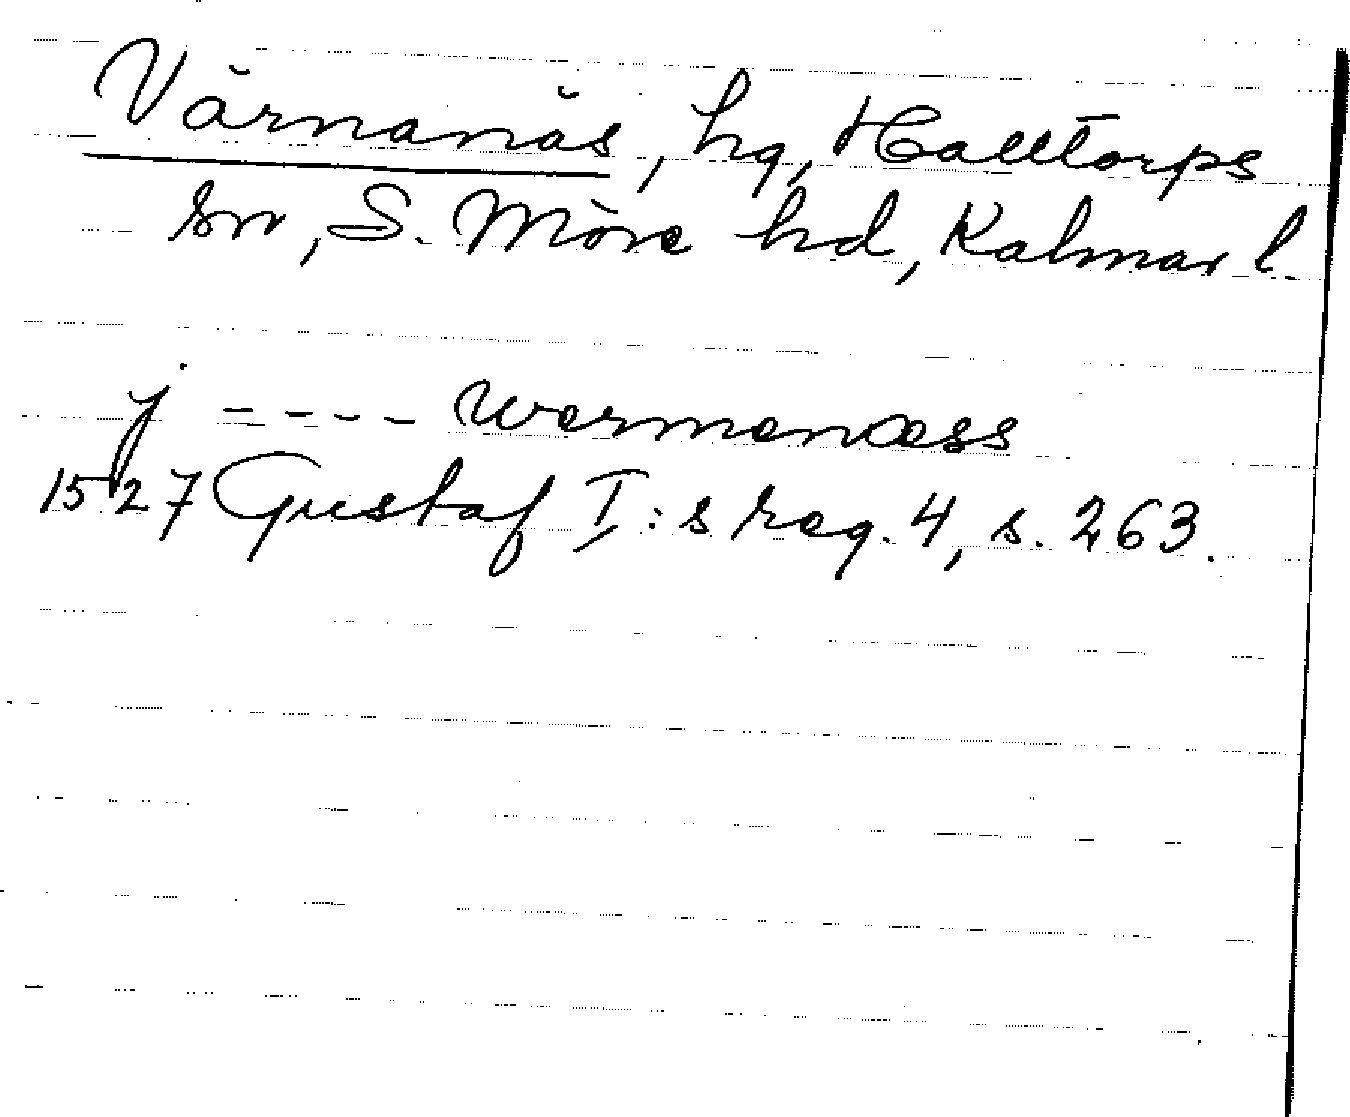 Värnanäs, hg, Halltorps
sn, S. Möre hd, Kalmar l.
j - - - - Wermenæss
1527 Gustaf I:s reg. 4, s. 263.